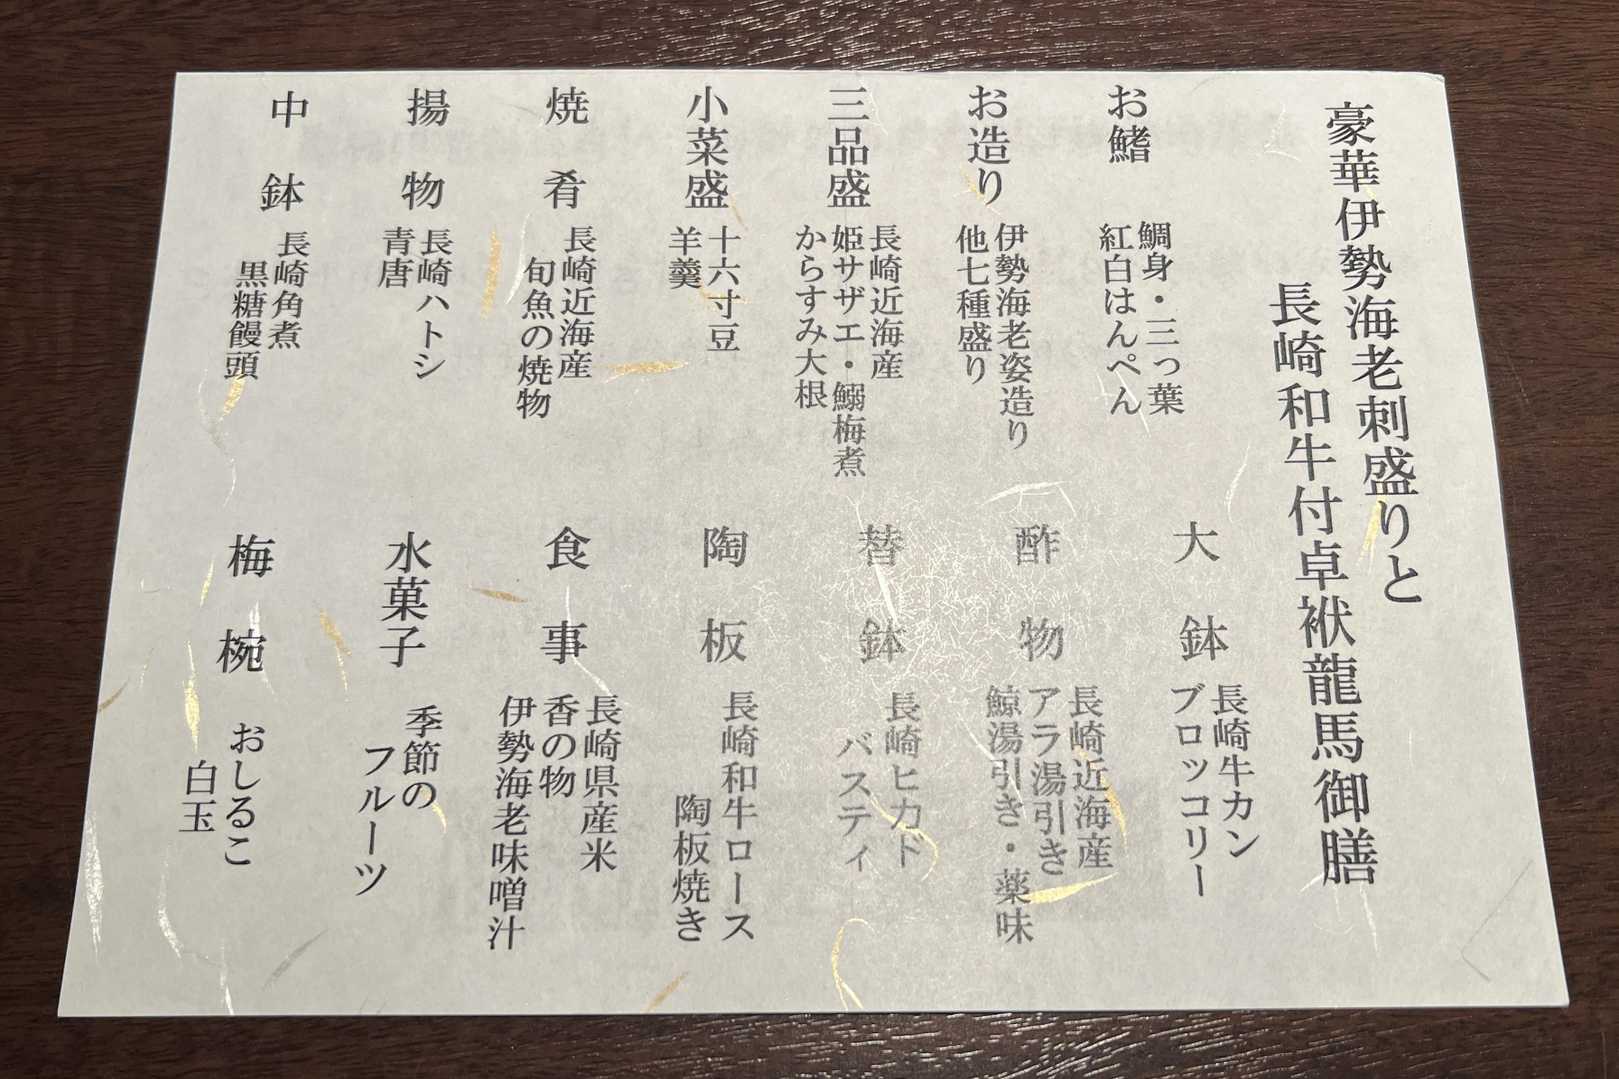 豪華伊勢海老刺盛りと
長崎和牛付卓袱龍馬御膳
お鰭
鯛身・三っ葉
紅白はんぺん
お造り
伊勢海老姿造り
他七種盛り
三品盛
長崎近海産
姫サザエ・鰯梅煮
からすみ大根
小菜盛
十六寸豆
羊羹
焼肴
長崎近海産
旬魚の焼物
揚物
長崎ハトシ
青唐
中鉢
長崎角煮
黒糖饅頭
大鉢
長崎牛カン
ブロッコリー
酢物
長崎近海産
アラ湯引き
鯨湯引き・薬味
替鉢
長崎ヒカド
パスティ
陶板
長崎和牛ロース
陶板焼き
食事
長崎県産米
香の物
伊勢海老味噌汁
水菓子
季節の
フルーツ
梅椀
おしるこ
白玉